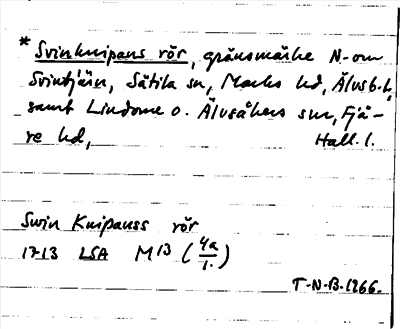 * Svinknipans rör, gränsmärke N. om
Svintjärn, Sätila sn, Marks hd, Älvsb. l,
samt Lindome o. Älvsåkers snr, Fjä-
re hd, Hall. l.
Swin Knipanss rör
1713 LSA M13 (4a/1.)
T-N-B-1966.